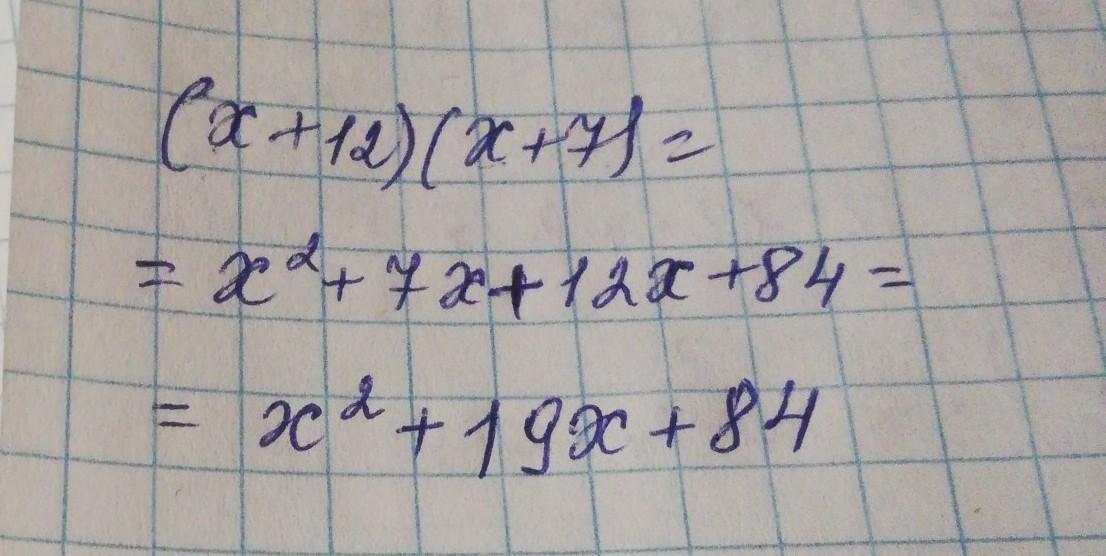 (x+12)(x+7)=
= x²+7x+12x+84=
= x²+19x+84